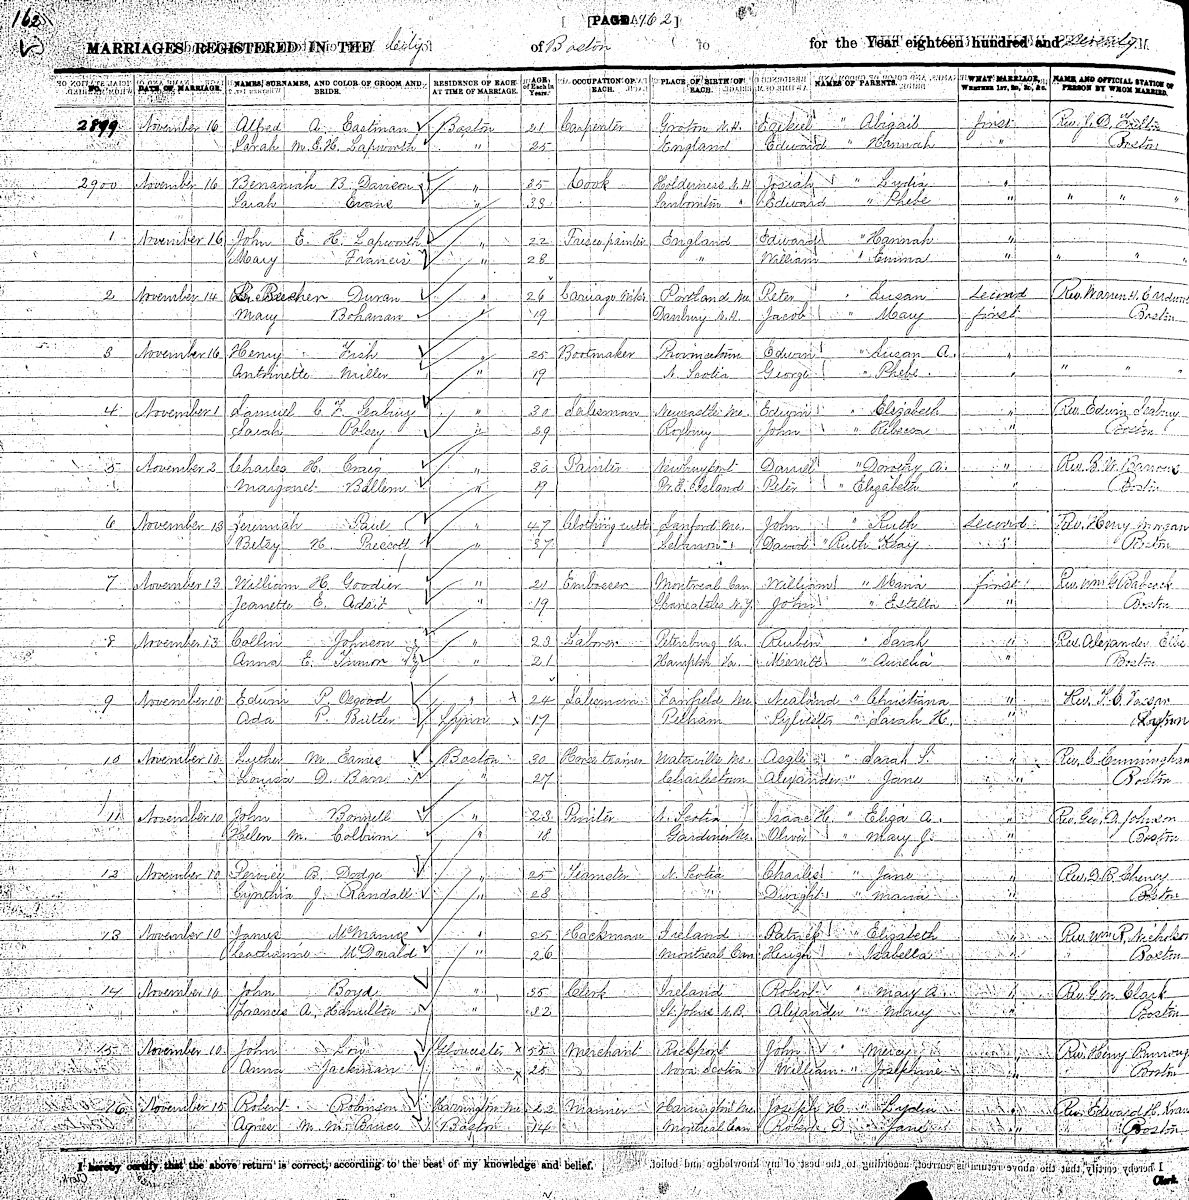 162
[PAGE 162]
MARRIAGES REGISTERED IN THE City of Boston for the Year eighteen hundred and Seventy
No. DATE OF MARRIAGE. NAMES, SURNAMES, AND COLOR OF GROOM AND BRIDE. RESIDENCE OF EACH AT TIME OF MARRIAGE. AGE of Each in Years. OCCUPATION OF EACH. PLACE OF BIRTH OF EACH. NAMES OF PARENTS. WHAT MARRIAGE, WHETHER 1ST, 2D, 3D, &c. NAME AND OFFICIAL STATION OF PERSON BY WHOM MARRIED.
2899 November 16 Alfred A. Eastman Boston 21 Carpenter Groton N.H. Ezekiel " Abigail first Rev. J. D. Fulton
Sarah M. E. H. Lapworth " 25 England Edward " Hannah " Boston
2900 November 16 Benaniah B. Davison " 25 Cook Holderness N.H. Josiah Lydia "
Sarah Evans " 33 Sanbornton " Edward " Phebe " " " "
1 November 16 John E. H. Lapworth " 22 Fresco painter England Edward " Hannah "
Mary Francis " 28 " William " Emma " " " "
2 November 14 Beecher Duran " 26 Carriage Portland Me. Peter " Susan Second Rev. Warren H.
Mary Bohanan " 19 Danbury N.H. Jacob " Mary first Boston
3 November 16 Henry Fish " 25 Bootmaker Provincetown Edwin " Susan A. "
Antoinette Miller " 19 N. Scotia George " Phebe " " " "
4 November 1 Samuel C. F. Seabury " 30 Salesman Newcastle Me. Edwin " Elizabeth " Rev. Edwin Seabury
Sarah Polsey " 29 Roxbury John " Rebecca " Boston
5 November 2 Charles H. Craig " 30 Painter Newburyport Daniel " Dorothy A. " Rev. B. W. Barrows
Margaret Bellem " 19 Pr. E. Island Peter " Elizabeth " Boston
6 November 13 Jeremiah Paul " 47 Clothing cutter Sanford Me. John " Ruth Second Rev. Henry Morgan
Betsy H. Prescott " 37 Lebanon " David " Ruth Hay " Boston
7 November 13 William H. Goodier " 21 Embosser Montreal Can William " Maria first Rev. Wm G. Babcock
Jeanette E. Adsit " 19 Skaneateles N.Y. John " Estella " Boston
8 November 13 Collin Johnson " 23 Laborer Petersburg Va. Reuben " Sarah " Rev. Alexander Ellis
Anna E. " 21 Hampton Va. Merritt " Aurelia " Boston
9 November 10 Edwin P. Osgood " 24 Salesman Fairfield Me. Nealand " Christiana " Rev. T. E. Vassar
Ada P. Butler Lynn 17 Pelham Sylvester " Sarah H. " Lynn
10 November 10 Luther M. Eames Boston 30 Horse trainer Waterville Me. Asgle " Sarah S. " Rev. E. Cunningham
Louisa D. Barr " 27 Charlestown Alexander " Jane " Boston
11 November 10 John Bonnell " 23 Printer N. Scotia Isaac H. " Eliza A. " Rev. Geo. A. Johnson
Helen M. Colburn " 18 Gardiner Me. Oliver " Mary J. " Boston
12 November 10 B. Dodge " 25 Teamster N. Scotia Charles " Jane " Rev. D. B. Cheney
Cynthia J. Randall " 28 " Dwight " Maria " Boston
13 November 10 James McManus " 25 Hackman Ireland Patrick " Elizabeth " Rev. Wm R. Nicholson
Catharine McDonald " 26 Montreal Can Hugh " Isabella " Boston
14 November 10 John Boyd " 35 Clerk Ireland Robert " Mary A. " Rev. G. M. Clark
Frances A. Hamilton " 32 St. Johns N.B. Alexander " Mary " Boston
15 November 10 John Low Gloucester 55 Merchant Rockport John " Mercy " Rev. Henry Burroughs
Anna Jackman " 25 Nova Scotia William " Josephine " Boston
16 November 15 Robert Robinson Harrington Me. 22 Mariner Harrington Me. Joseph H. " Lydia " Rev. Edward H.
Agnes M. M. Bruce Boston 14 Montreal Can Robert D. Jane " Boston
I hereby certify that the above return is correct, according to the best of my knowledge and belief.
Clerk.